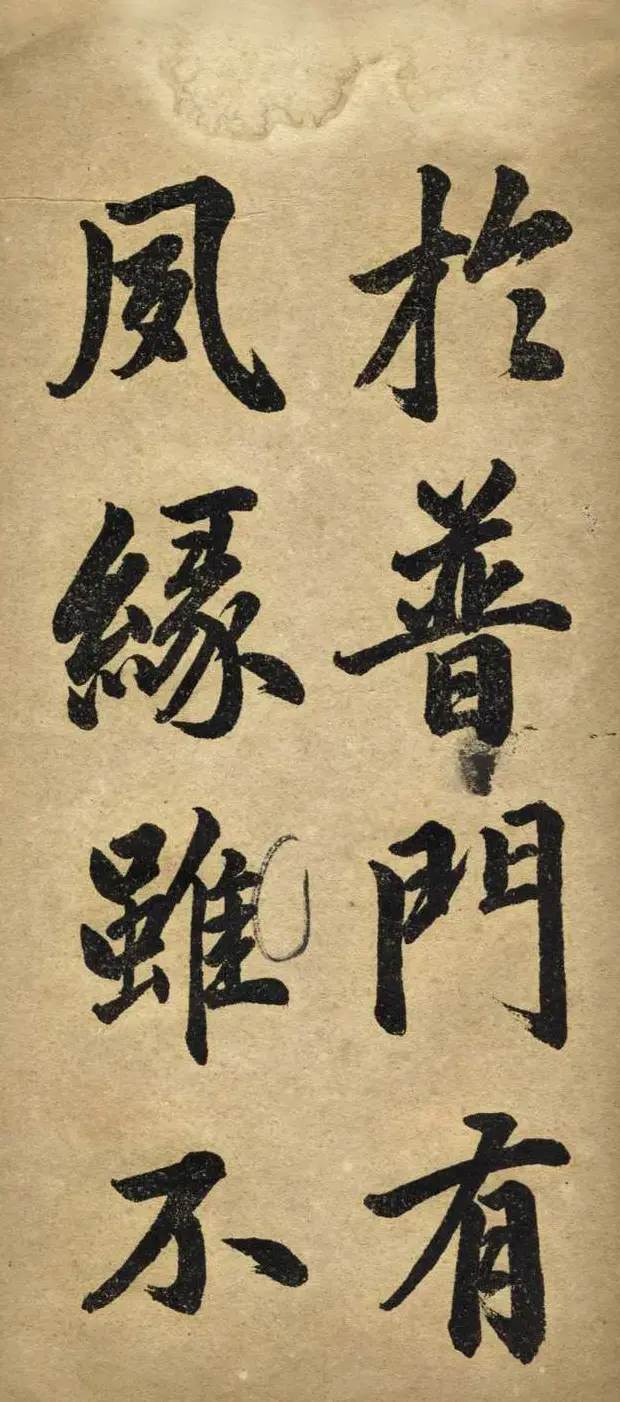 於普門有
夙緣雖不